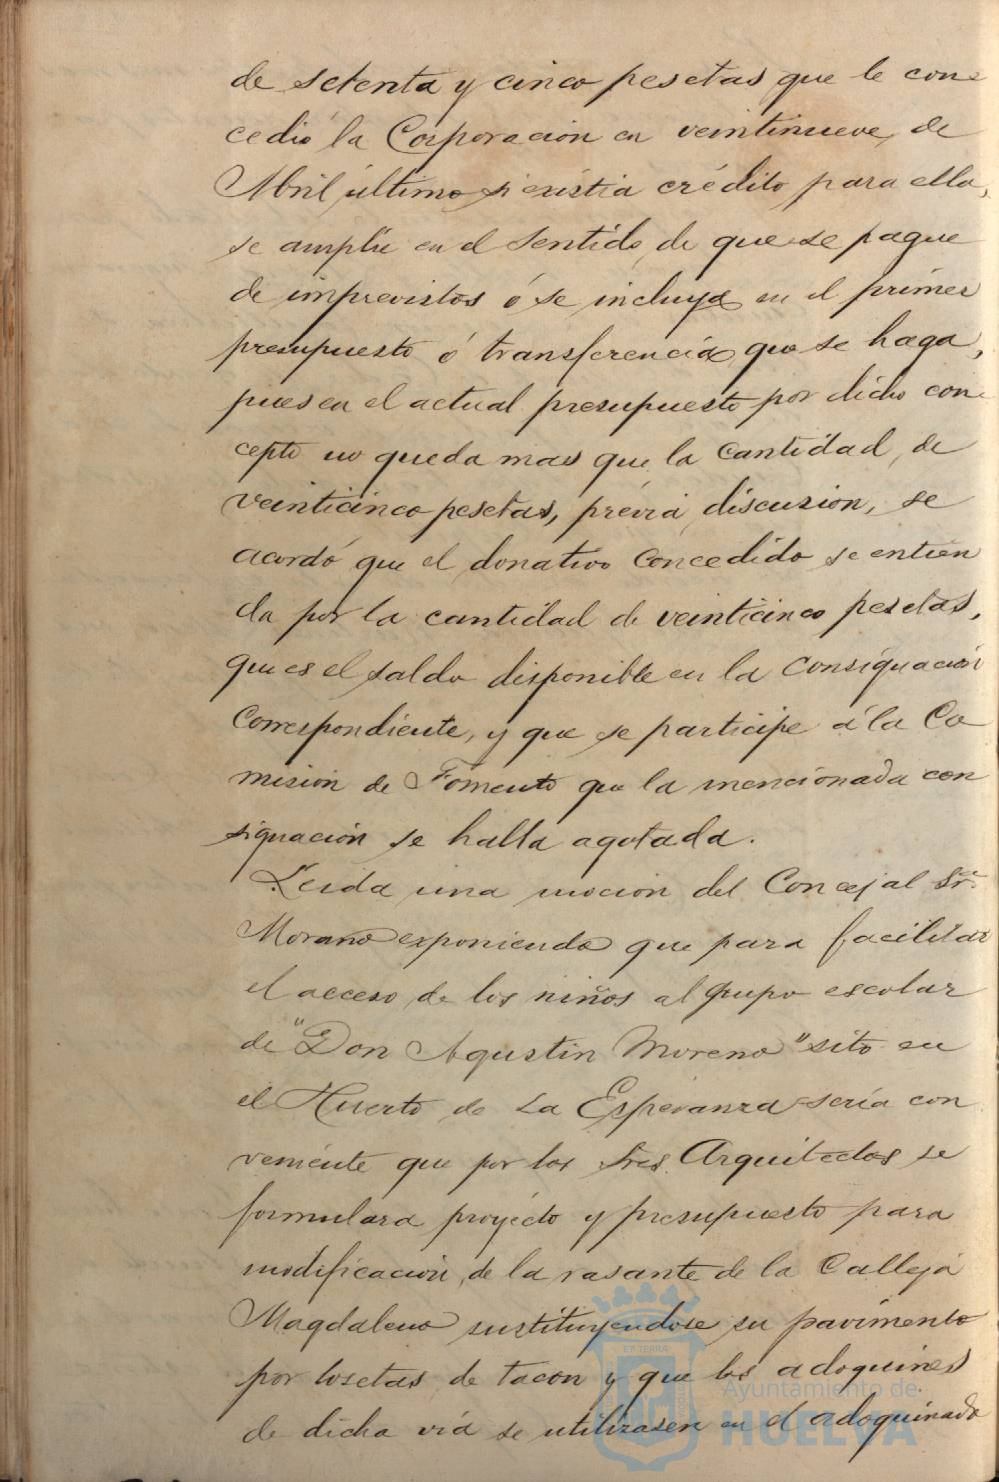 de setenta y cinco pesetas que le con-
cedió la Corporación en veintinueve de
Abril último si existia crédito para ello,
se amplíe en el sentido de que se pague
de imprevistos ó se incluya en el primer
presupuesto ó transferencia que se haga,
pues en el actual presupuesto por dicho con-
cepto no queda mas que la cantidad de
veinticinco pesetas, prévia discusion, se
acordó que el donativo concedido se entien
da por la cantidad de veinticinco pesetas,
que es el saldo disponible en la consignación
correspondiente, y que se participe á la Co
misión de Fomento que la mencionada con
signación se halla agotada.
Leida una moción del Concejal Sr.
Morano exponiendo que para facilitar
el acceso de los niños al grupo escolar
de "Don Agustin Moreno" sito en
el Huerto de La Esperanza sería con
veniente que por los Sres. Arquitectos se
formulara proyécto y presupuesto para
modificación de la rasante de la Calleja
Magdalena sustituyendose su pavimento
por losetas de tacon y que los adoquines
de dicha vía se utilizasen en el adoquinado
ET TERRA
Ayuntamiento de
HUELVA